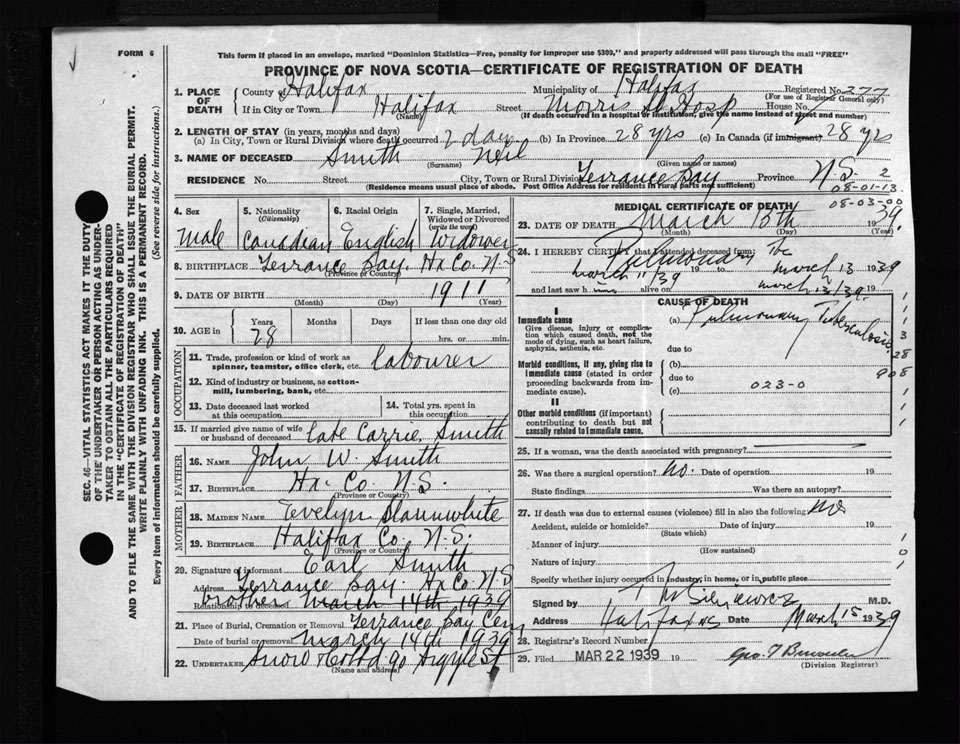 FORM 6
This form if placed in an envelope, marked "Dominion Statistics—Free, penalty for improper use $300," and properly addressed will pass through the mail "FREE"
PROVINCE OF NOVA SCOTIA—CERTIFICATE OF REGISTRATION OF DEATH
SEC. 46—VITAL STATISTICS ACT MAKES IT THE DUTY
OF THE UNDERTAKER OR PERSON ACTING AS UNDER-
TAKER TO OBTAIN ALL THE PARTICULARS REQUIRED
IN THE "CERTIFICATE OF REGISTRATION OF DEATH"
AND TO FILE THE SAME WITH THE DIVISION REGISTRAR WHO SHALL ISSUE THE BURIAL PERMIT.
WRITE PLAINLY WITH UNFADING INK. THIS IS A PERMANENT RECORD.
Every item of information should be carefully supplied. (See reverse side for instructions.)
1. PLACE OF DEATH
County of Halifax Municipality of Halifax Registered No. 277
(For use of Registrar General only)
If in City or Town Halifax Street Morris St Hosp House No.
(Name) (If death occurred in a hospital or institution, give the name instead of street and number)
2. LENGTH OF STAY (in years, months and days)
(a) In City, Town or Rural Division where death occurred 2 day (b) In Province 28 yrs (c) In Canada (if immigrant) 28 yrs
3. NAME OF DECEASED Smith Neil
(Surname) (Given name or names)
RESIDENCE No. Street City, Town or Rural Division Terrance Bay Province N.S. 2
(Residence means usual place of abode. Post Office Address for residents in rural parts not sufficient)
08-01-13
08-03-00
4. Sex Male
5. Nationality (Citizenship) Canadian
6. Racial Origin English
7. Single, Married, Widowed or Divorced (write the word) Widower
8. BIRTHPLACE Terrance Bay. Hx Co. N.S
(Province or Country)
9. DATE OF BIRTH 1911
(Month) (Day) (Year)
10. AGE in Years 28 Months Days If less than one day old
hrs. or min.
OCCUPATION
11. Trade, profession or kind of work as
spinner, teamster, office clerk, etc. labourer
12. Kind of industry or business, as cotton-
mill, lumbering, bank, etc.
13. Date deceased last worked
at this occupation
14. Total yrs. spent in
this occupation
15. If married give name of wife
or husband of deceased late Carrie Smith
FATHER
16. Name John W. Smith
17. Birthplace Hx Co. N.S.
(Province or Country)
MOTHER
18. Maiden Name Evelyn Slaunwhite
19. Birthplace Halifax Co. N.S.
(Province or Country)
20. Signature of informant Earl Smith
Address Terrance Bay. Hx Co. N.S
Relationship to deceased brother March 14th 1939
21. Place of Burial, Cremation or Removal Terrance Bay Cem
Date of burial or removal March 14th 1939
22. UNDERTAKER Snow & Co Ltd 90 Argyle St
(Name and address)
MEDICAL CERTIFICATE OF DEATH
23. DATE OF DEATH March 13th 1939.
(Month) (Day) (Year)
24. I HEREBY CERTIFY that I attended deceased from:
Pulmonary Tbc
March 11/39 19 to March 13 1939
and last saw h im alive on March 13/39. 19
CAUSE OF DEATH
I
Immediate cause
Give disease, injury or complica-
tion which caused death, not the
mode of dying, such as heart failure,
asphyxia, asthenia, etc.
(a) Pulmonary Tuberculosis
due to
Morbid conditions, if any, giving rise to
immediate cause (stated in order
proceeding backwards from im-
mediate cause).
(b)
due to
(c) 023-0
II
Other morbid conditions (if important)
contributing to death but not
causally related to immediate cause.
3
28
908
25. If a woman, was the death associated with pregnancy?
26. Was there a surgical operation? No. Date of operation 19
State findings Was there an autopsy?
27. If death was due to external causes (violence) fill in also the following No
Accident, suicide or homicide? Date of injury 19
(State which)
Manner of injury
(How sustained)
Nature of injury
Specify whether injury occurred in industry, in home, or in public place
Signed by M.D.
Address Halifax NS Date March 15 1939
28. Registrar's Record Number
29. Filed MAR 22 1939 19
(Division Registrar)